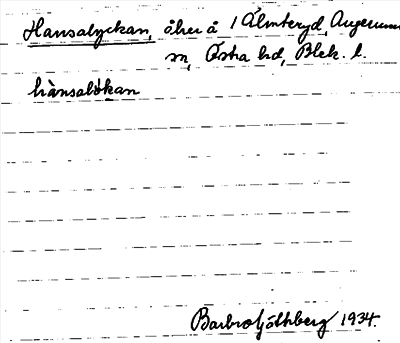 Hansalyckan, åker å 1 Älmteryd, Augerums
sn, Östra hd, Blek. l.
hànsalökan
Barbro Götherberg 1934.